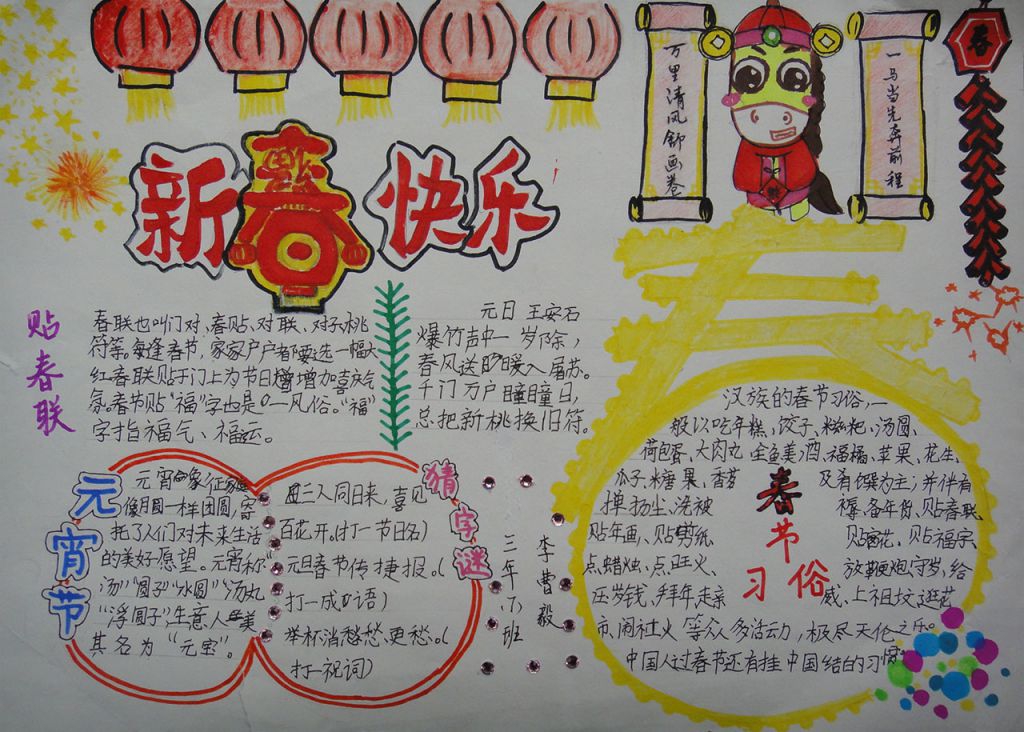 万里清风舒画卷
一马当先奔前程
春
新春快乐
春
贴春联
春联也叫门对、春贴、对联、对子,桃
符等,每逢春节,家家户户都要选一幅大
红春联贴于门上为节日增加喜庆气
氛。春节贴“福”字也是一风俗。“福”
字指福气、福运。
元日 王安石
爆竹声中一岁除,
春风送暖入屠苏。
千门万户瞳瞳日,
总把新桃换旧符。
元宵节
元宵象征
像月圆一样团圆,寄
托了人们对未来生活
的美好愿望。元宵称
汤”“圆子”“水圆”“汤丸
“浮圆子”生意人美
其名为“元宝”。
猜字谜
三人同日来,喜见
百花开。(打一节日名)
元旦春节传捷报。(
打一成语)
举杯消愁愁更愁。(
打一祝词)
三年(7)班
李曹毅
汉族的春节习俗,一
般以吃年糕、饺子、糍粑、汤圆、
荷包蛋、大肉丸、全鱼、美酒、福橘、苹果、花生、
瓜子、糖果、香茗及肴馔为主;并伴有
掸扬尘、洗被褥、备年货、贴春联
贴年画、贴剪纸、贴窗花、贴福字、
点蜡烛、点旺火、放鞭炮、守岁、给
压岁钱、拜年、走亲戚、上祖坟、逛花
市、闹社火等众多活动,极尽天伦之乐。
中国人过春节还有挂中国结的习惯
春节习俗